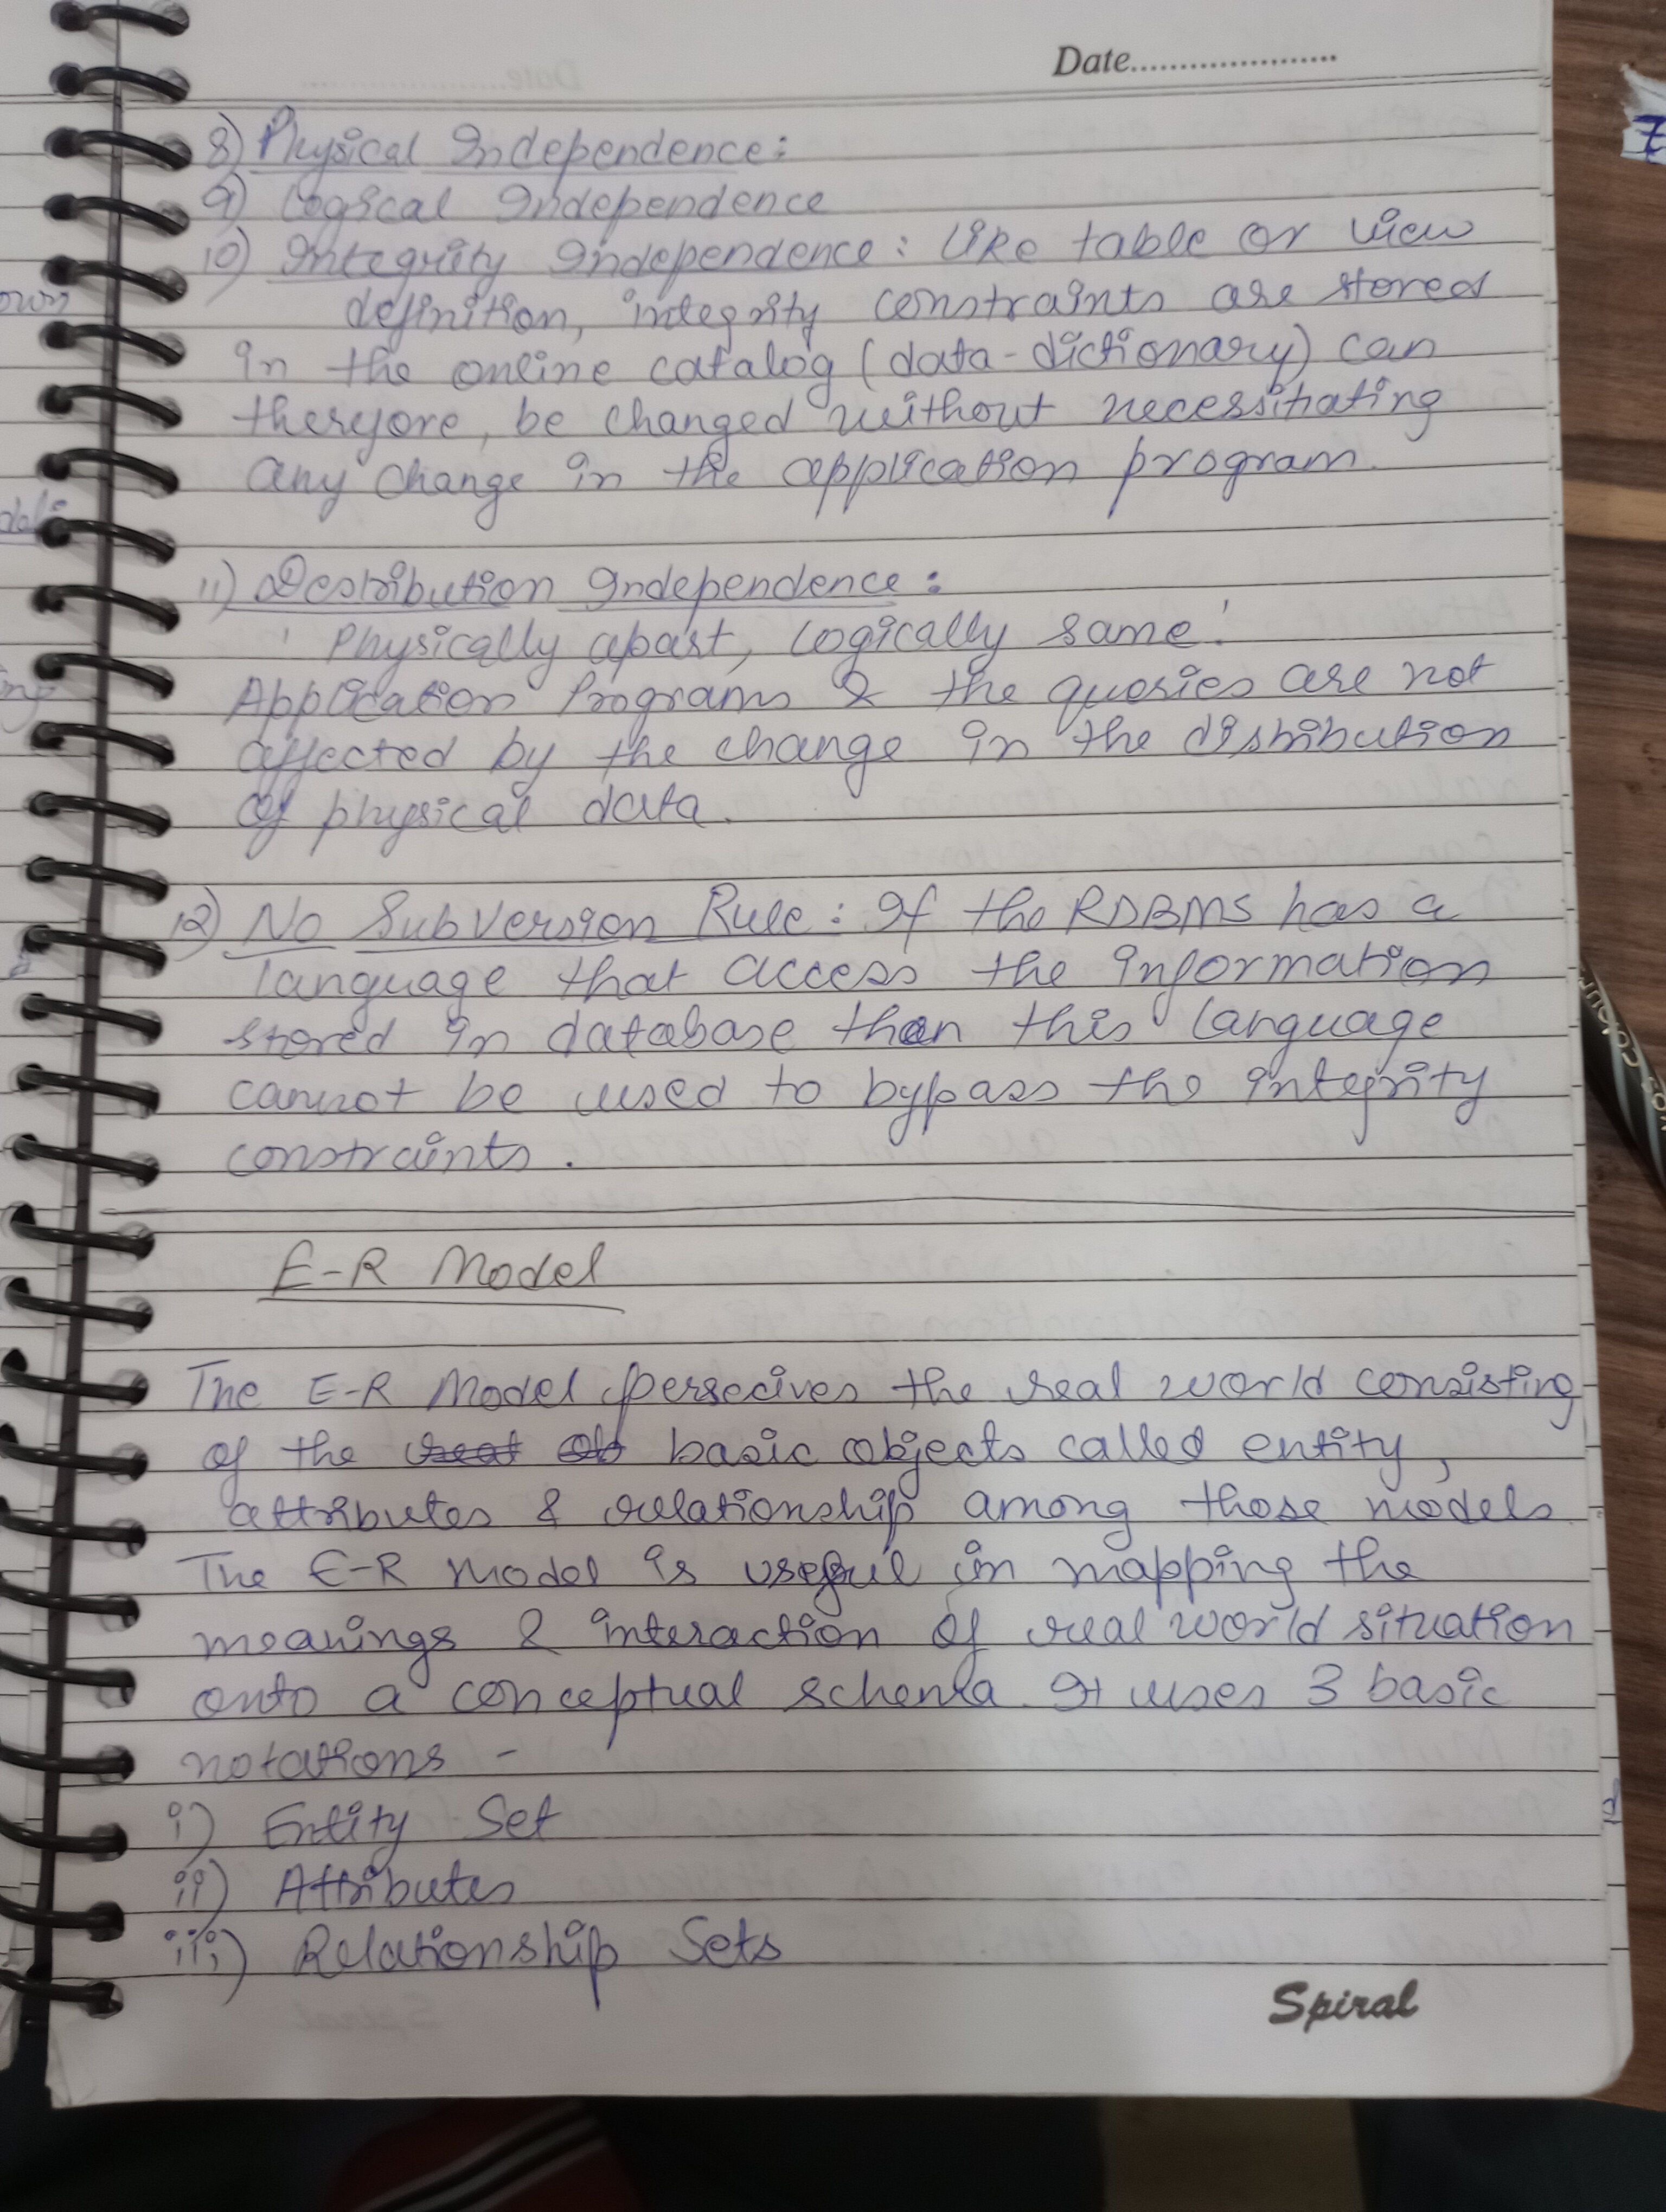 Date.....................
8) Physical Independence:
9) Logical Independence
10) Integrity Independence: Like table or view
definition, integrity constraints are stored
in the online catalog (data-dictionary) can
therefore, be changed without necessitiating
any change in the application program.
11) Destribution Independence:
' Physically apart, Logically same '
Application Programs & the queries are not
affected by the change in the distribution
of physical data.
12) No Subversion Rule: If the RDBMS has a
language that access the information
stored in database then this language
cannot be used to bypass the integrity
constraints.
E-R Model
The E-R Model persecives the real world consisting
of the basic objects called entity,
attributes & relationship among those models.
The E-R Model is useful in mapping the
meanings & interaction of real world situation
onto a conceptual schema. It uses 3 basic
notations -
i) Entity Set
ii) Attributes
iii) Relationship Sets
Spiral